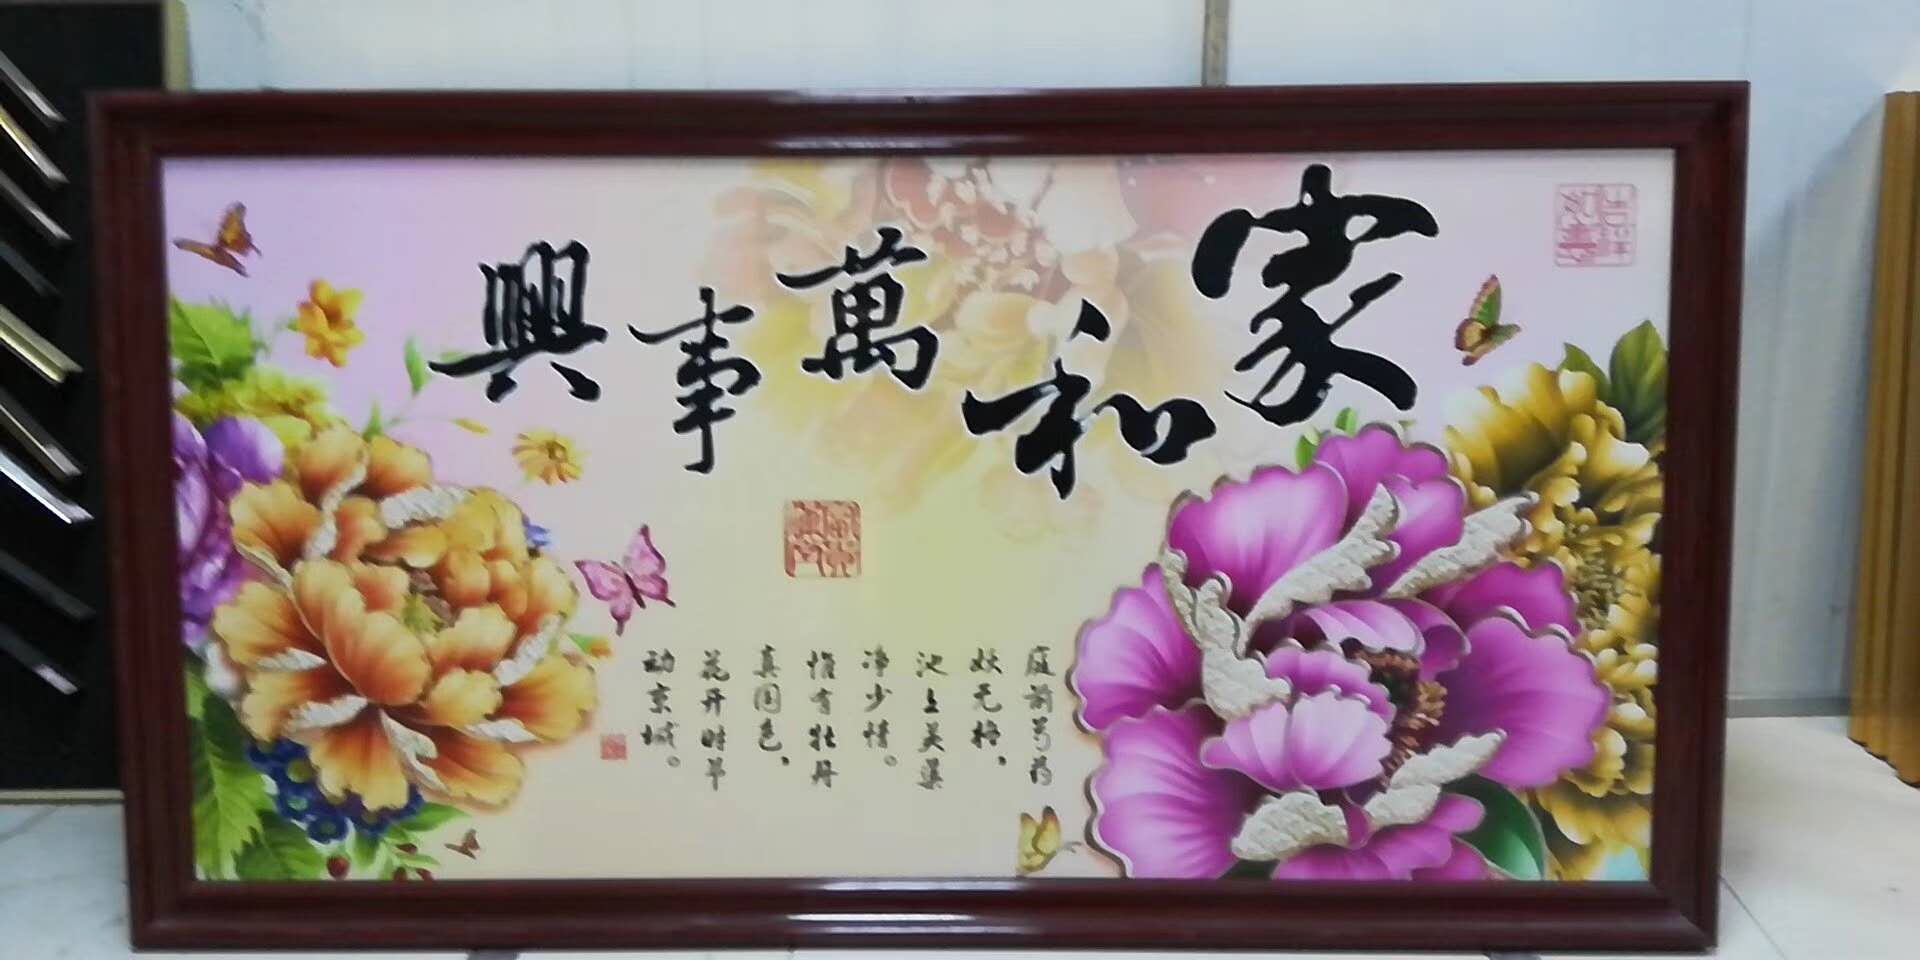 家和萬事興
庭前芍药
妖无格，
池上芙蕖
净少情。
惟有牡丹
真国色，
花开时节
动京城。